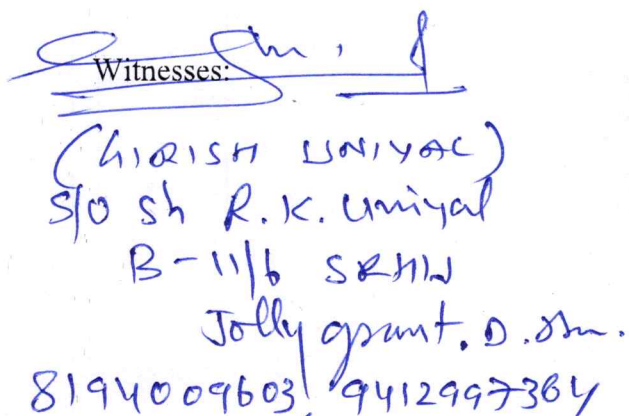 Witnesses:
(GIRISH UNIYAL)
S/O Sh R.K. Uniyal
B-11/6 SRHIU
Jolly grant. D.Dn.
8194009603, 9412997364